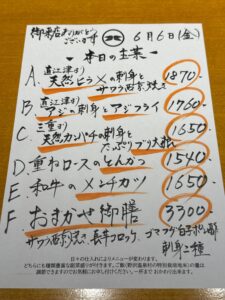 御来店ありがとうございます 6月6日(金)
本日の主菜
A. 直江津より 天然ヒラメの刺身と
サワラ西京焼き 1870-
B 直江津より アジの刺身とアジフライ 1760-
C 三重より 天然カンパチの刺身と
たっぷりブリ大根 1650
D. 重ねロースのとんかつ 1540-
E 和牛のメンチカツ 1650
F おまかせ御膳 3300
サワラ西京焼き、長芋コロッケ、ゴマフグ白子
刺身二種
日々の仕入れによりメニューが変わります。